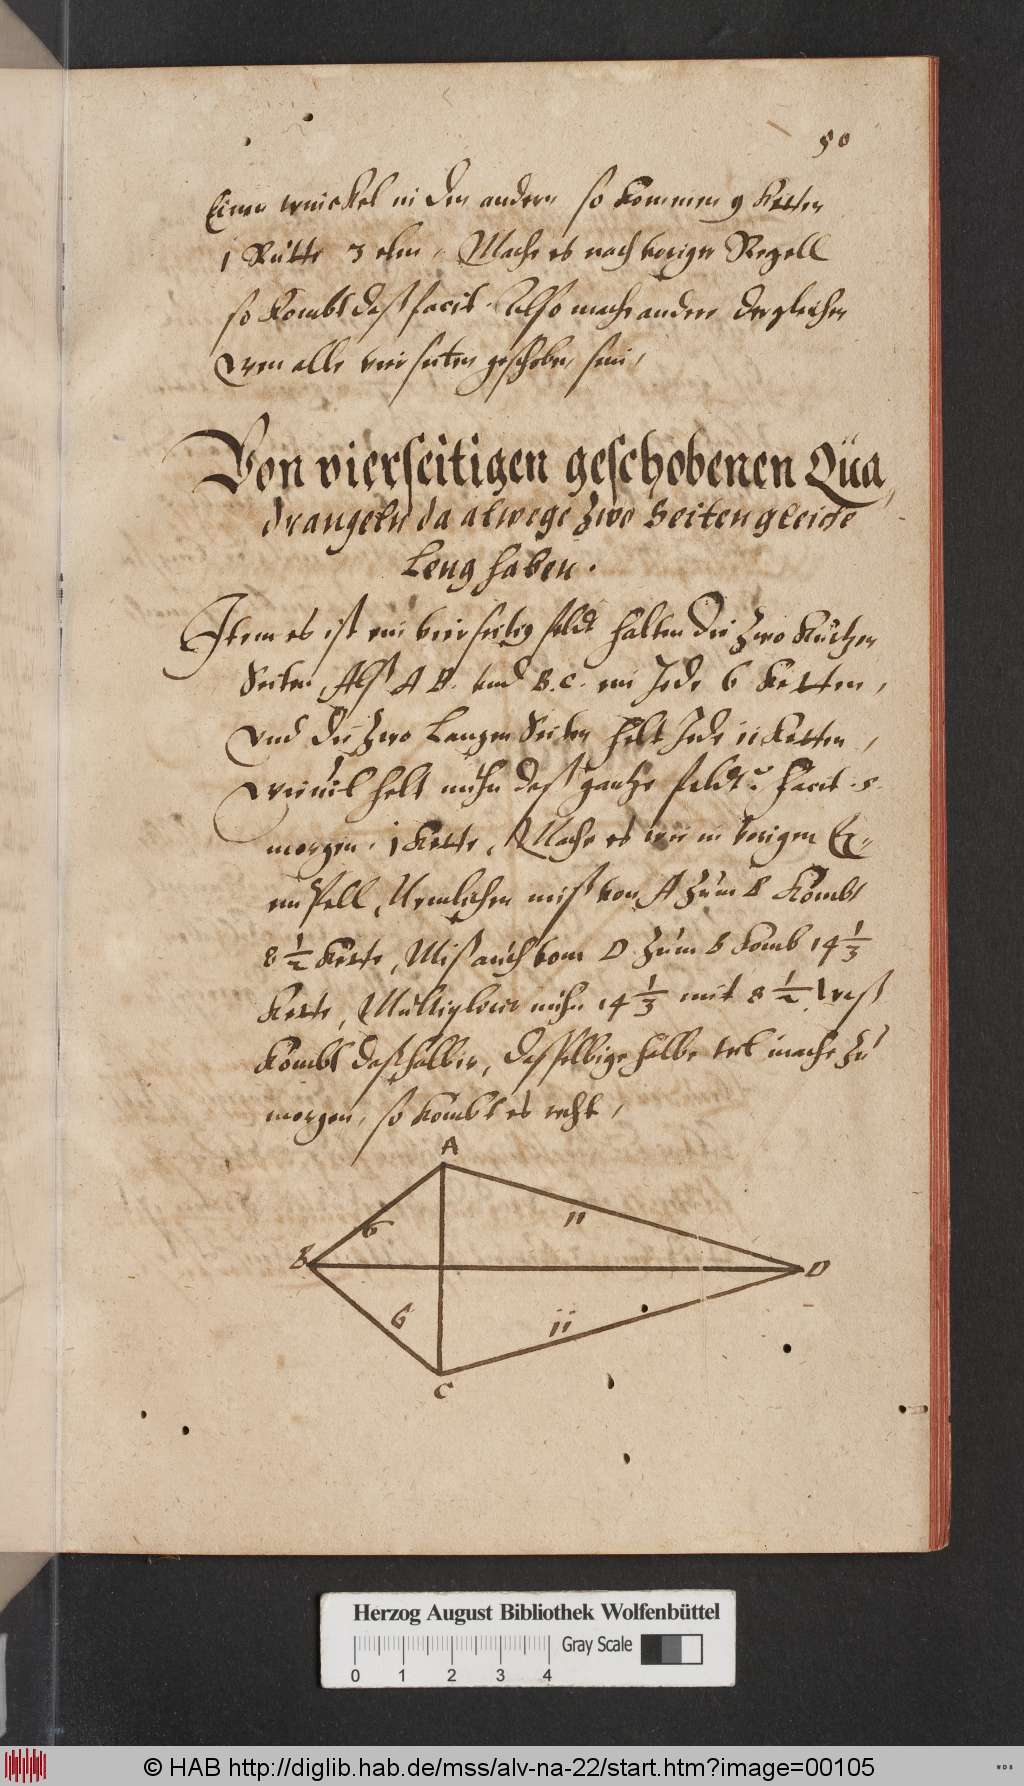 50
Einen winckel in den andern so kommen 9 Ketten
1 Rutte 3 elen, Mache es nach voriger Regell
so kombt daß facit. Also mache andere dergleichen
wen alle vier seiten geschoben sein,
Von vierseitigen geschobenen Qüa,
drangeln da alwege zwo Seiten gleiche
Leng haben.
Item es ist ein vierseitig feldt halten die zwo Kurtzen
Seiten, Alß A B. vnd B.C. ein Jede 6 Ketten,
Vnd die zwo Langen Seiten helt Jede ii Ketten,
wieuil helt nuhn daß gantze feldt? facit .5.
morgen. 1 Kette, Mache es wie in vorigen Ex,,
empell, Nemlichen miß von A zum B Kombt
8 1/2 Kette, Miß auch vom D zum B komb 14 1/3
Kette, Multiplicir nuhn 14 1/3 mit 8 1/2 waß
Kombt daß halbir, dasselbige halbe teil mache zu
morgen, so kombt es recht,
A
6
11
B
D
6
ii
C
Herzog August Bibliothek Wolfenbüttel
Gray Scale
0 1 2 3 4
© HAB http://diglib.hab.de/mss/alv-na-22/start.htm?image=00105